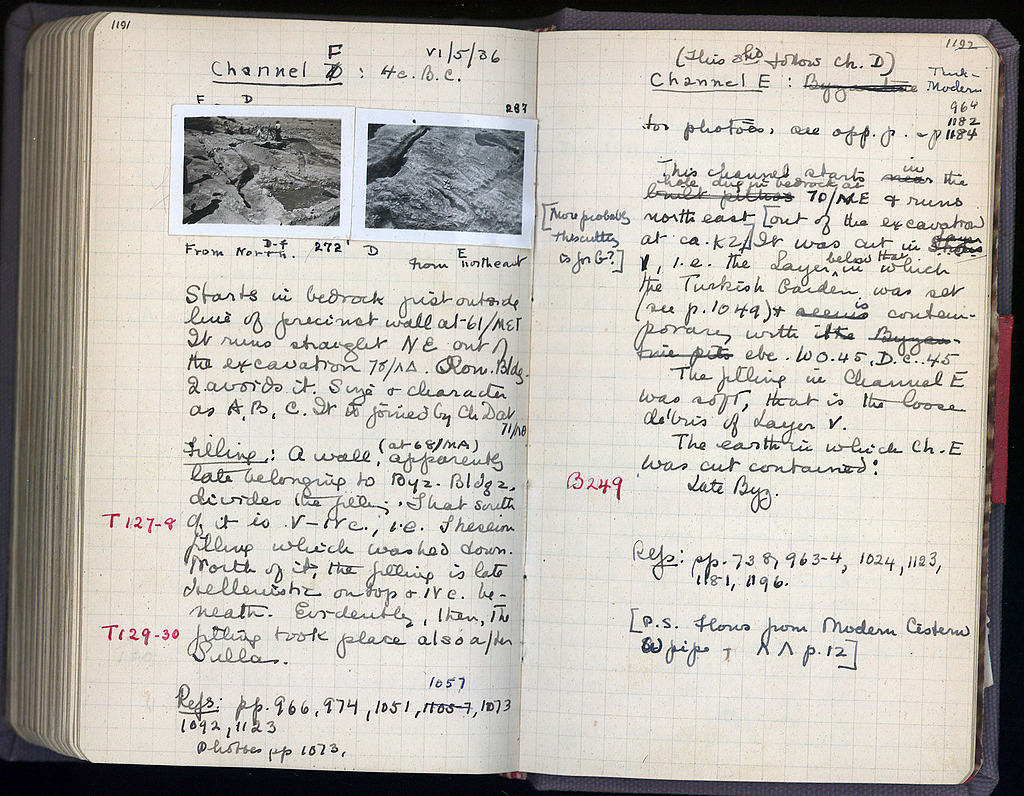 1191
VI/5/36
F
Channel D : 4c. B.C.
F D
287
From North. D-F 272' D
from E northeast
Starts in bedrock just outside
line of precinct wall at 61/MET
It runs straight NE out of
the excavation 75/ΛΔ. Rom. Bldg.
2 avoids it. Size & character
as A, B, C. It is joined by Ch. D at
71/
(at 68/MA)
Filling: A wall, apparently
late belonging to Byz. Bldg 2,
divides the filling. That south
T127-8 of it is V-IV c., i.e. Theseion
filling which washed down.
North of it, the filling is late
Hellenistic on top & IV c. be-
neath. Evidently, then, the
T129-30 filling took place also after
Sulla.
1057
Refs: pp. 966, 974, 1051, 1105-7, 1073
1092, 1123
Photoes pp 1073.
1192
(This shd follow ch. D)
Channel E : Byzantine Turk-
Modern
964
1182
for photoes, see opp. p. - p 1184
This channel starts in near the
hole dug in bedrock at
built pithos 70/ME & runs
northeast [out of the excavation
[More probably
this cutting
is for G?]
at ca. K2/] It was cut in
V, i.e. the Layer below that in which
the Turkish Garden was set
(see p. 1049) & seems is contem-
porary with the Byzan-
tine pits ebe. W0.45, D.c. .45
The filling in Channel E
was soft, that is the loose
débris of Layer V.
The earth in which Ch. E
was cut contained:
B249
Late Byz.
Refs: pp. 738, 963-4, 1024, 1123,
1181, 1196.
[P.S. Flows from Modern Cistern
W pipe ΛΛ p.12]